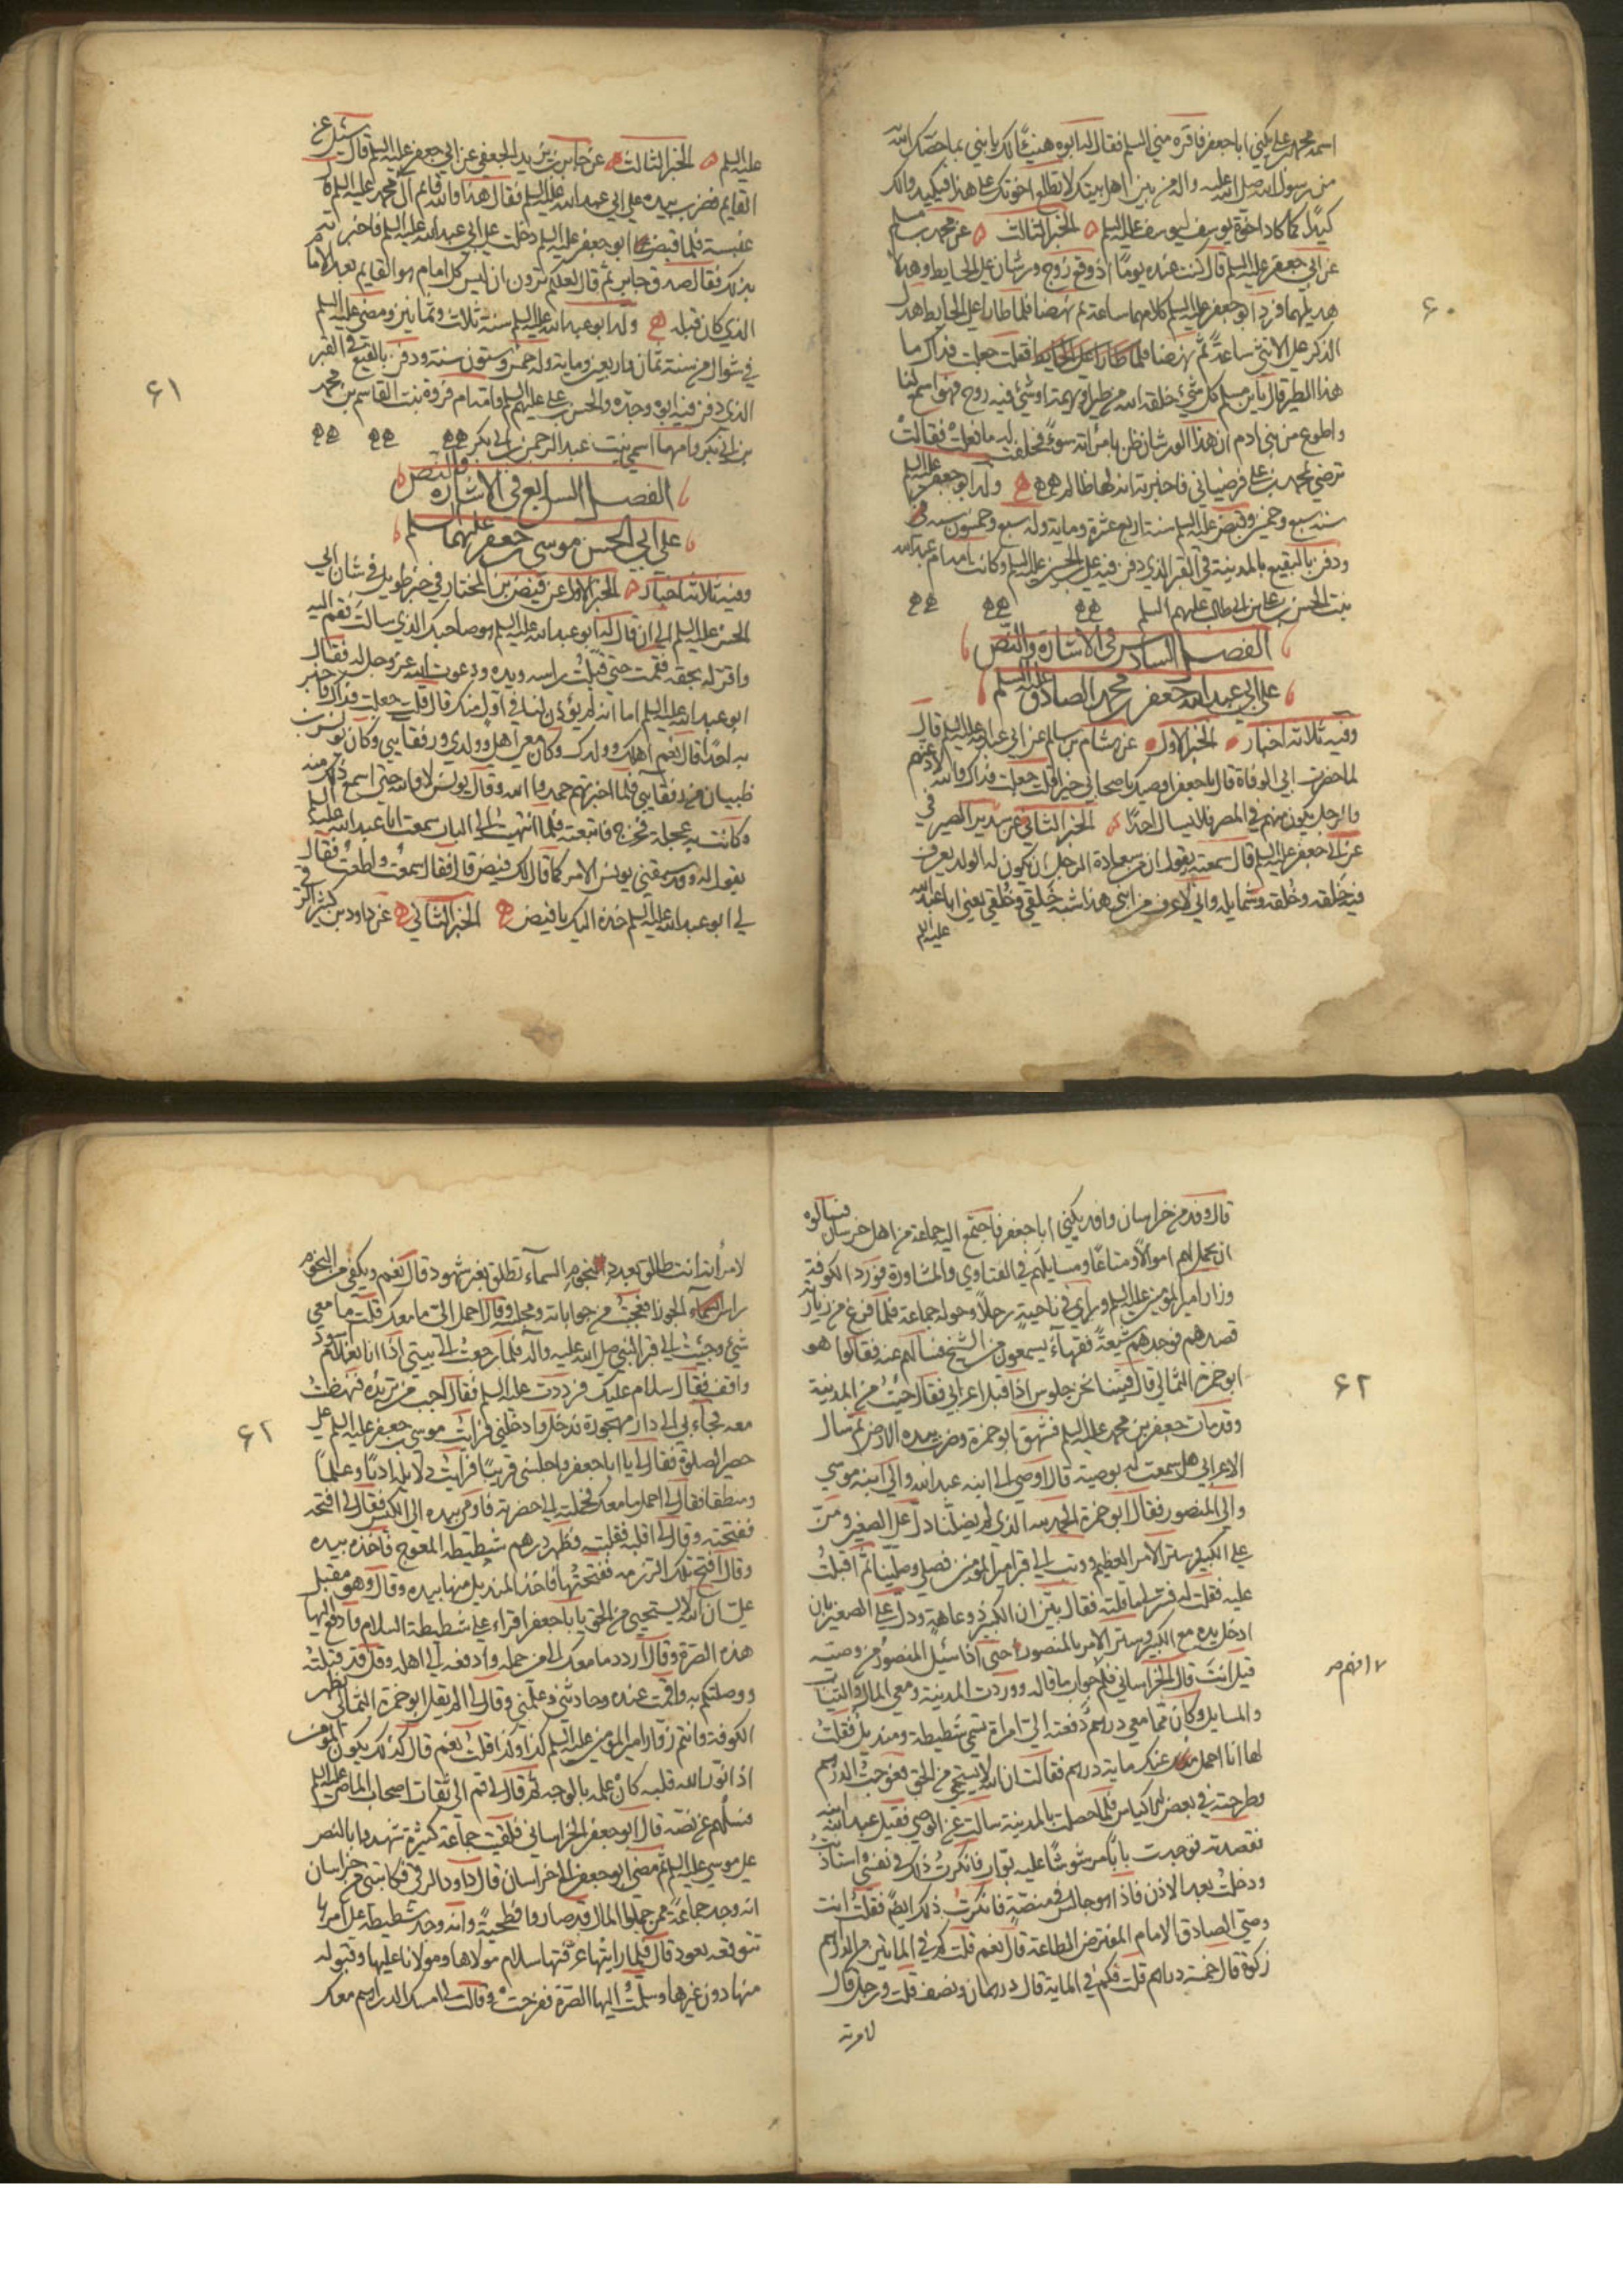 اسمه محمد بن علي يكنى ابا جعفر فاقره مني السلم فقال له ابوه هنيئًا لك يا بني بما خصّك الله
من رسول الله صلى الله عليه واله من بين اهل بيتك لا تطلع اخوتك على هذا فيكيدوا لك
كيدًا كما كاد اخوة يوسف ليوسف عليه السلم الخبر الثالث عن محمد بن مسلم
عن ابي جعفر عليه السلم قال كنت عنده يومًا اذ وقع زوج ورشان على الحايط وهدلا
هديلهما فرد ابو جعفر عليه السلم كلامهما ساعة ثم نهضا فلما طارا على الحايط هدل
الذكر على الانثى ساعةً ثم نهضا فلما طارا على الحايط فقلت جعلت فداك ما
هذا الطير قال يا بن مسلم كل شيء خلقه الله من طير او بهيمة او شيء فيه روح فهو اسمع لنا
واطوع من بني ادم ان هذا الورشان ظن بامرأته سوءً فحلفت له ما فعلت فقالت
ترضى بمحمد بن علي فرضيا بي فاخبرته انه لها ظالم ولد ابو جعفر عليه السلم
سنة سبع وخمسين وقبض عليه السلم سنة اربع عشرة وماية وله سبع وخمسون سنة
ودفن بالبقيع بالمدينة في القبر الذي دفن فيه علي بن الحسين عليه السلم وكانت امه ام عبد الله
بنت الحسن بن علي بن ابي طالب عليهم السلم
الفصل السادس في الاشارة والنّص
على ابي عبد الله جعفر بن محمد الصادق عليه السلم
وفيه ثلاثة اخبار الخبر الاول عن هشام بن سالم عن ابي عبد الله عليه السلم قال
لما حضرت ابي الوفاة قال يا جعفر اوصيك باصحابي خيرا قلت جعلت فداك والله لادعنهم
والرجل يكون منهم في المصر فلا يسال احدًا الخبر الثاني عن سدير الصيرفي
عن ابي جعفر عليه السلم قال سمعته يقول ان من سعادة الرجل ان يكون له الولد يعرف
فيه خلقه وخُلقه وشمايله واني لاعرف من ابني هذا شبه خَلقي وخُلقي يعني ابا عبد الله
عليه السلم
٦٠
عليه السلم الخبر الثالث عن جابر بن يزيد الجعفي عن ابي جعفر عليه السلم قال سئل عن
القايم فضرب بيده على ابي عبد الله عليه السلم فقال هذا والله قائم آل محمد عليه السلم قال
عنبسة فلما قبض ابو جعفر عليه السلم دخلت على ابي عبد الله عليه السلم فاخبرته
بذلك فقال صدق جابر ثم قال لعلكم ترون ان ليس كل امام هو القايم بعد الامام
الذي كان قبله ولد ابو عبد الله عليه السلم سنة ثلاث وثمانين ومضى عليه السلم
في شوال من سنة ثمان واربعين وماية وله خمس وستون سنة ودفن بالبقيع في القبر
الذي دفن فيه ابوه وجدّه والحسن بن علي عليهم السلم وامه ام فروة بنت القاسم بن محمد
بن ابي بكر وامها اسمى بنت عبد الرحمن بن ابي بكر
الفصل السابع في الاشارة والنّص
على ابي الحسن موسى بن جعفر عليهما سلم
وفيه ثلاثة اخبار الخبر الاول عن فيض بن المختار في خبر طويل في شان ابي
الحسن عليه السلم الى ان قال له ابو عبد الله عليه السلم هو صاحبك الذي سالت فقم اليه
واقر له بحقه فقمت حتى قبّلت راسه ويده ودعوت الله عز وجل له فقال
ابو عبد الله عليه السلم اما انه لم يؤذن لنا في اول منك قال قلت جعلت فداك فاخبر
به احدًا قال نعم اهلك وولدك وكان معي اهلي وولدي ورفقايي وكان يونس بن
ظبيان من رفقايي فلما اخبرتهم حمدوا الله وقال يونس لا والله حتى اسمع ذلك منه
وكانت به عجلة فخرج فاتبعته فلما انتهيت الى الباب سمعت ابا عبد الله عليه السلم
يقول له وقد سبقني يونس الامر كما قال لك فيض قال فقال سمعت واطعت فقال
لي ابو عبد الله عليه السلم خذه اليك يا فيض الخبر الثاني عن داود بن كثير الرقي
٦١
قال وفد من خراسان وافد يكنى ابا جعفر فاجتمع اليه جماعة من اهل خرسان فسالوه
ان يحمل لهم اموالًا ومتاعًا ومسايلهم في الفتاوي والمشاورة فورد الكوفة
وزار امير المؤمنين عليه السلم وراى في ناحيةٍ رجلًا وحوله جماعة فلما فرغ من زيارته
قصدهم فوجدهم شيعةً فقهآءً يسمعون من الشيخ فسالهم عنه فقالوا هو
ابو حمزة الثمالي قال فبينا نحن جلوس اذا قبل اعرابي فقال جئت من المدينة
وقد مات جعفر بن محمد عليه السلم فشهق ابو حمزة وضرب بيده الارض ثم سال
الاعرابي هل سمعت له بوصية قال اوصى الى ابنه عبد الله والى ابنه موسى
والى المنصور فقال ابو حمزة الحمد لله الذي لم يضلّنا دلّ على الصغير ومنّ
على الكبير وستر الامر العظيم ووثب الى قبر امير المؤمنين فصلى وصلّينا ثم اقبلت
عليه فقلت له فسّر لي ما قلته فقال بيّن ان الكبير ذو عاهة ودل على الصغير بان
ادخل يده مع الكبير وستر الامر بالمنصور حتى اذا سئيل المنصور من وصيه
قيل انت قال الخراساني فلم جواب ما قاله ووردت المدينة ومعي المال والثياب
والمسايل وكان مما معي درهم دفعته اليّ امراة تسمى شطيطة ومنديل فقلت
لها انا احمل عنك ماية درهم فقالت ان الله لا يستحي من الحق فعوجت الدرهم
وطرحته في بعض الاكياس فلما حصلت بالمدينة سالت عن الوصي فقيل عبد الله ابنه
فقصدته فوجدت بابًا مرشوشًا عليه بواب فانكرت ذلك في نفسي واستاذنت
ودخلت بعد الاذن فاذا هو جالس في منصّة فانكرت ذلك ايضًا فقلت انت
وصي الصادق الامام المفترض الطاعة قال نعم قلت كم في المائتين من الدراهم
زكوة قال خمسة دراهم قلت فكم في الماية قال درهمان ونصف قلت ورجل قال
لامرته
٦٢
لامرأته انت طالق بعدد نجوم السمآء تطلق بغير شهود قال نعم ويكفي من النجوم
راس الجوزا فعجبت من جواباته ومجلسه وقال احمل الي ما معك قلت ما معي
شيء وجئت الى قبر النبي صلى الله عليه واله فلما رجعت الى بيتي اذا انا بغلام اسود
واقف فقال سلام عليك فرددت عليه السلم فقال اجب من تريده فنهضت
معه فجآء بي الى دار مهجورة ودخل وادخلني فرايت موسى بن جعفر عليه السلم على
حصير الصلوة فقال لي يا ابا جعفر واجلسني قريبًا فرايت دلايله ادبًا وعلمًا
ومنطقًا فقال لي احمل ما معك فحملته الى حضرته فاومى بيده الى الكيس فقال لي افتحه
ففتحته وقال لي اقلبه فقلبته فظهر درهم شطيطة المعوج فاخذه بيده
وقال افتح تلك الرزمة ففتحتها فاخذ المنديل منها بيده وقال وهو مقبل
عليّ ان الله لا يستحيي من الحق يا ابا جعفر اقراء على شطيطة السلام مني وادفع اليها
هذه الصرة وقال اردد ما معك الى من حمله وادفعه الى اهله وقل قد قبلته
ووصلتكم به واقمت عنده وحادثني وعلمني وقال لي الم يقل ابو حمزة الثمالي بظهر
الكوفة وانتم زوّار امير المؤمنين عليه السلم كذا وكذا قلت نعم قال كذلك يكون المؤمن
اذا نور الله قلبه كان علمه بالوجه ثم قال لي قم الى ثقات اصحاب الماضي عليه السلم
فسلهم عن نصّه قال ابو جعفر الخراساني فلقيت جماعة كثيرة شهدوا بالنص
على موسى عليه السلم ثم مضى ابو جعفر الى خراسان قال داود الرقي فكاتبني من خراسان
انه وجد جماعةً ممن حملوا المال قد صاروا فطحيةً وانه وجد شطيطة على امرها
تتوقعه يعود قال فلما رايتها عرّفتها سلام مولاها ومولانا عليها وقبوله
منها دون غيرها وسلّمت اليها الصرّة ففرحت وقالت لي امسك الدراهم معك
٦٢